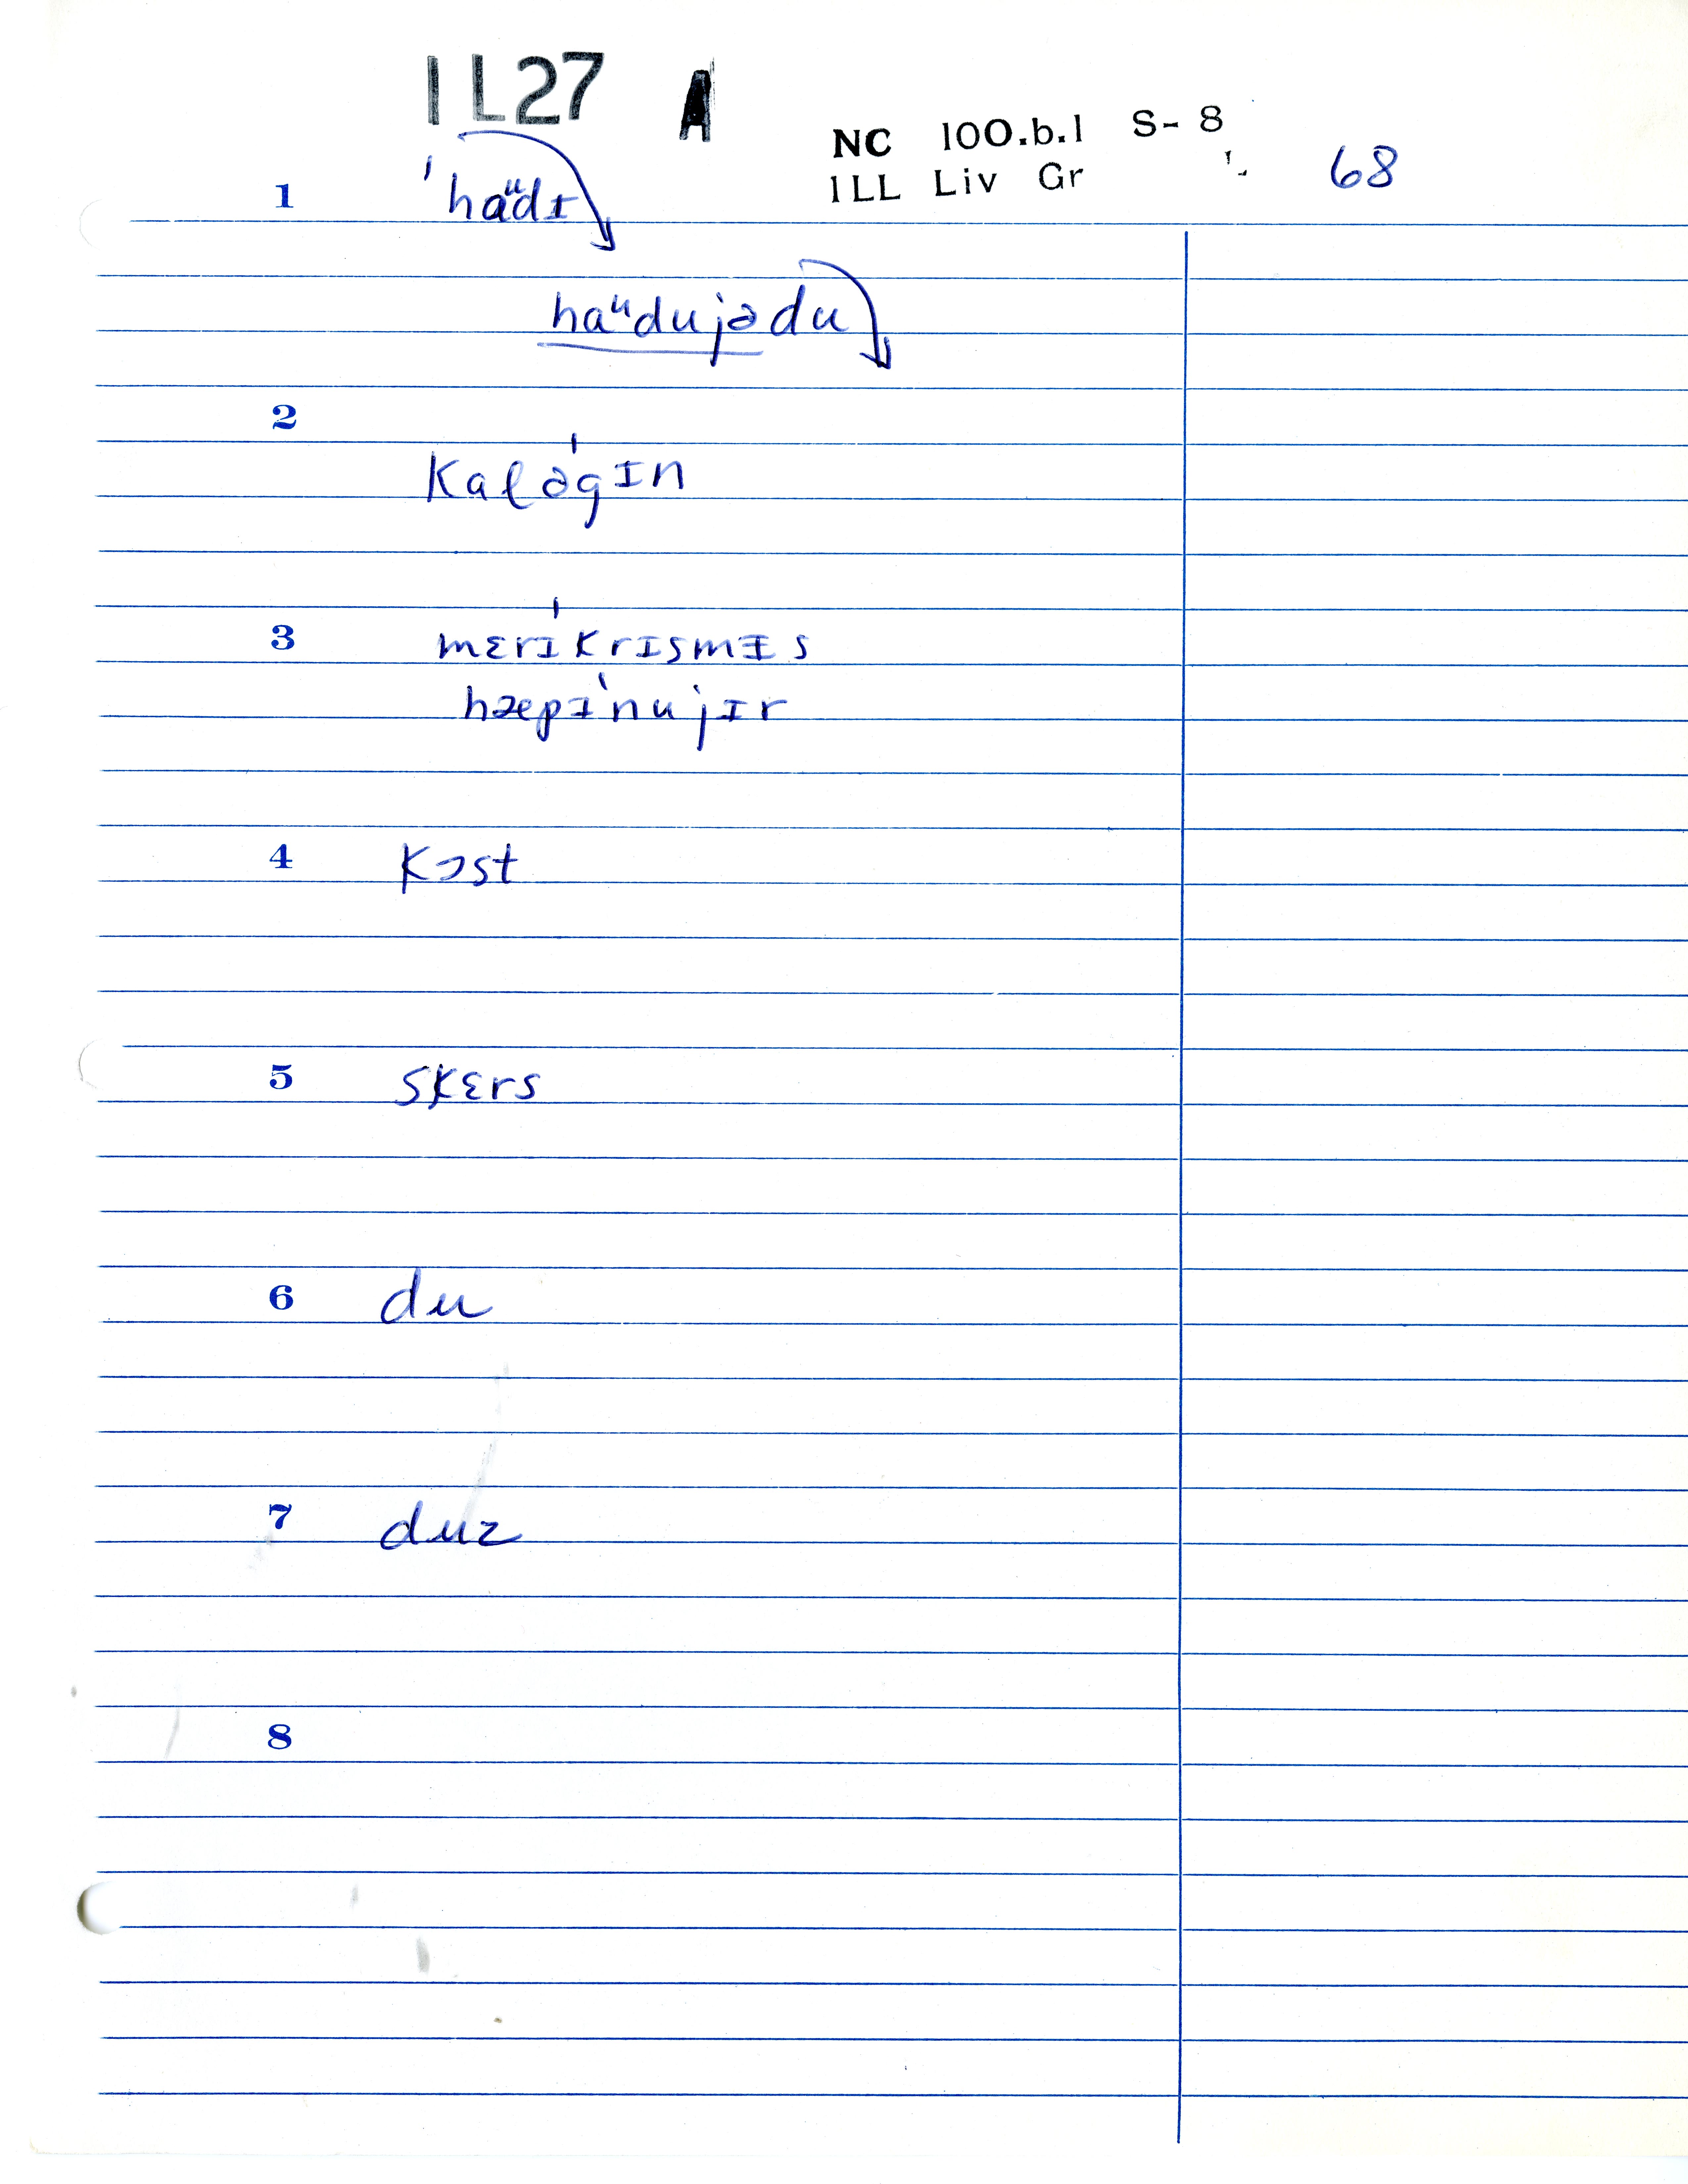 1L27 A
NC 100.b.1 S-8
ILL Liv Gr 68
1 ˈhaᵘdɪ
haᵘdujədu
2 kaləgɪn
3 mɛrɪkrɪsmɪs
hæpɪˈnujɪr
4 kɔst
5 skɛrs
6 du
7 duz
8